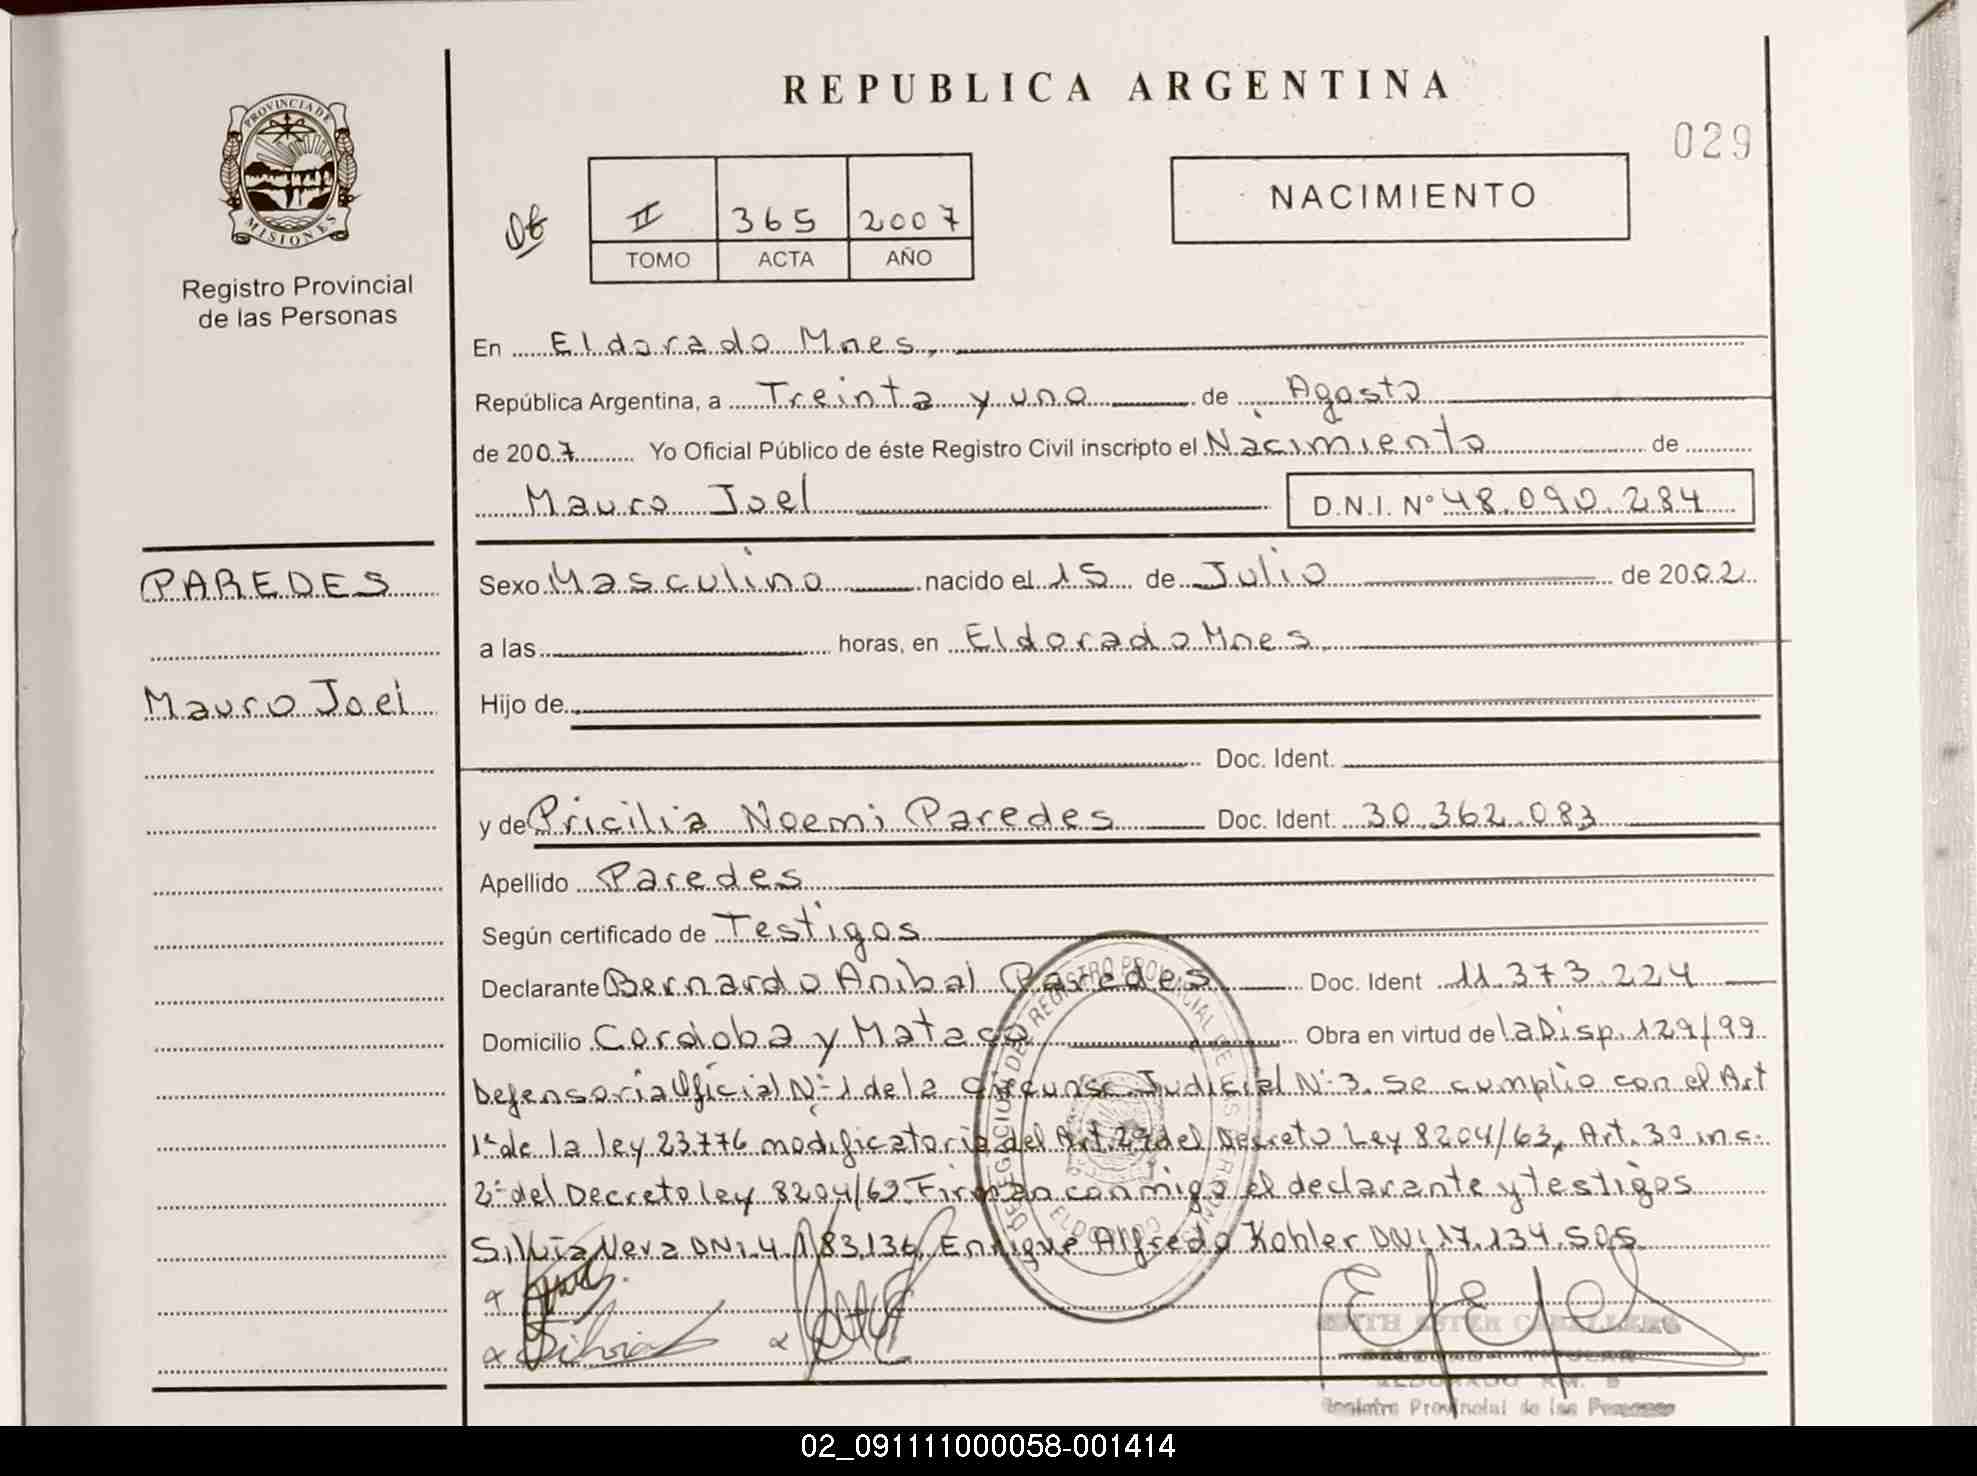 REPUBLICA ARGENTINA
029
PROVINCIA DE
MISIONES
Registro Provincial
de las Personas
II 365 2007
TOMO ACTA AÑO
NACIMIENTO
En Eldorado Mnes,
República Argentina, a Treinta y uno de Agosto
de 2007 Yo Oficial Público de éste Registro Civil inscripto el Nacimiento de
Mauro Joel D.N.I. Nº 48.090.284
PAREDES
Mauro Joel
Sexo Masculino nacido el 15 de Julio de 2002
a las horas, en Eldorado Mnes,
Hijo de
Doc. Ident.
y de Pricilia Noemi Paredes Doc. Ident. 30.362.083
Apellido Paredes
Según certificado de Testigos
Declarante Bernardo Anibal Paredes Doc. Ident 11.373.224
Domicilio Cordoba y Mataco Obra en virtud de la Disp. 129/99
Defensoria Oficial Nº 1 de la Circunsc Judicial Nº 3. Se cumplio con el Art
1º de la ley 23.776 modificatoria del Art. 29 del Decreto Ley 8204/63, Art. 30 inc.
2º del Decreto ley 8204/63. Firman conmigo el declarante y testigos
Silvia Nera DNI. 4.183.136, Enrique Alfredo Kohler DNI 17.134.505.
Silvia
DELEGACION DE REGISTRO PROVINCIAL DE LAS PERSONAS
ELDORADO
Registro Provincial de las Personas
02_091111000058-001414